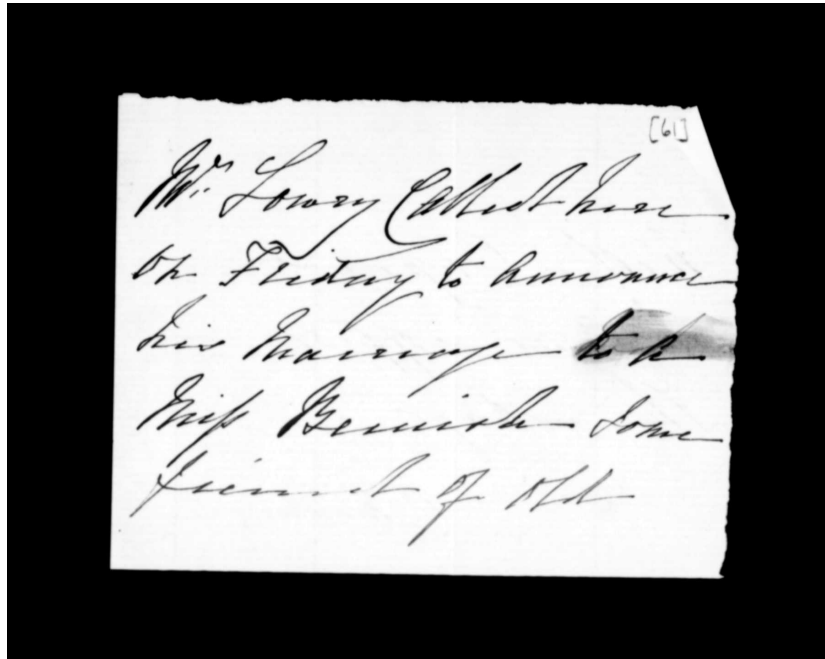 [61]
Mr. Lowry Called here
on Friday to announce
his Marriage to a
Miss
some
friend of old